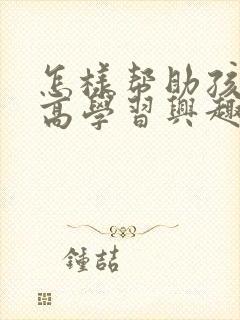 怎樣帮助孩
高學習興趣
鍾喆